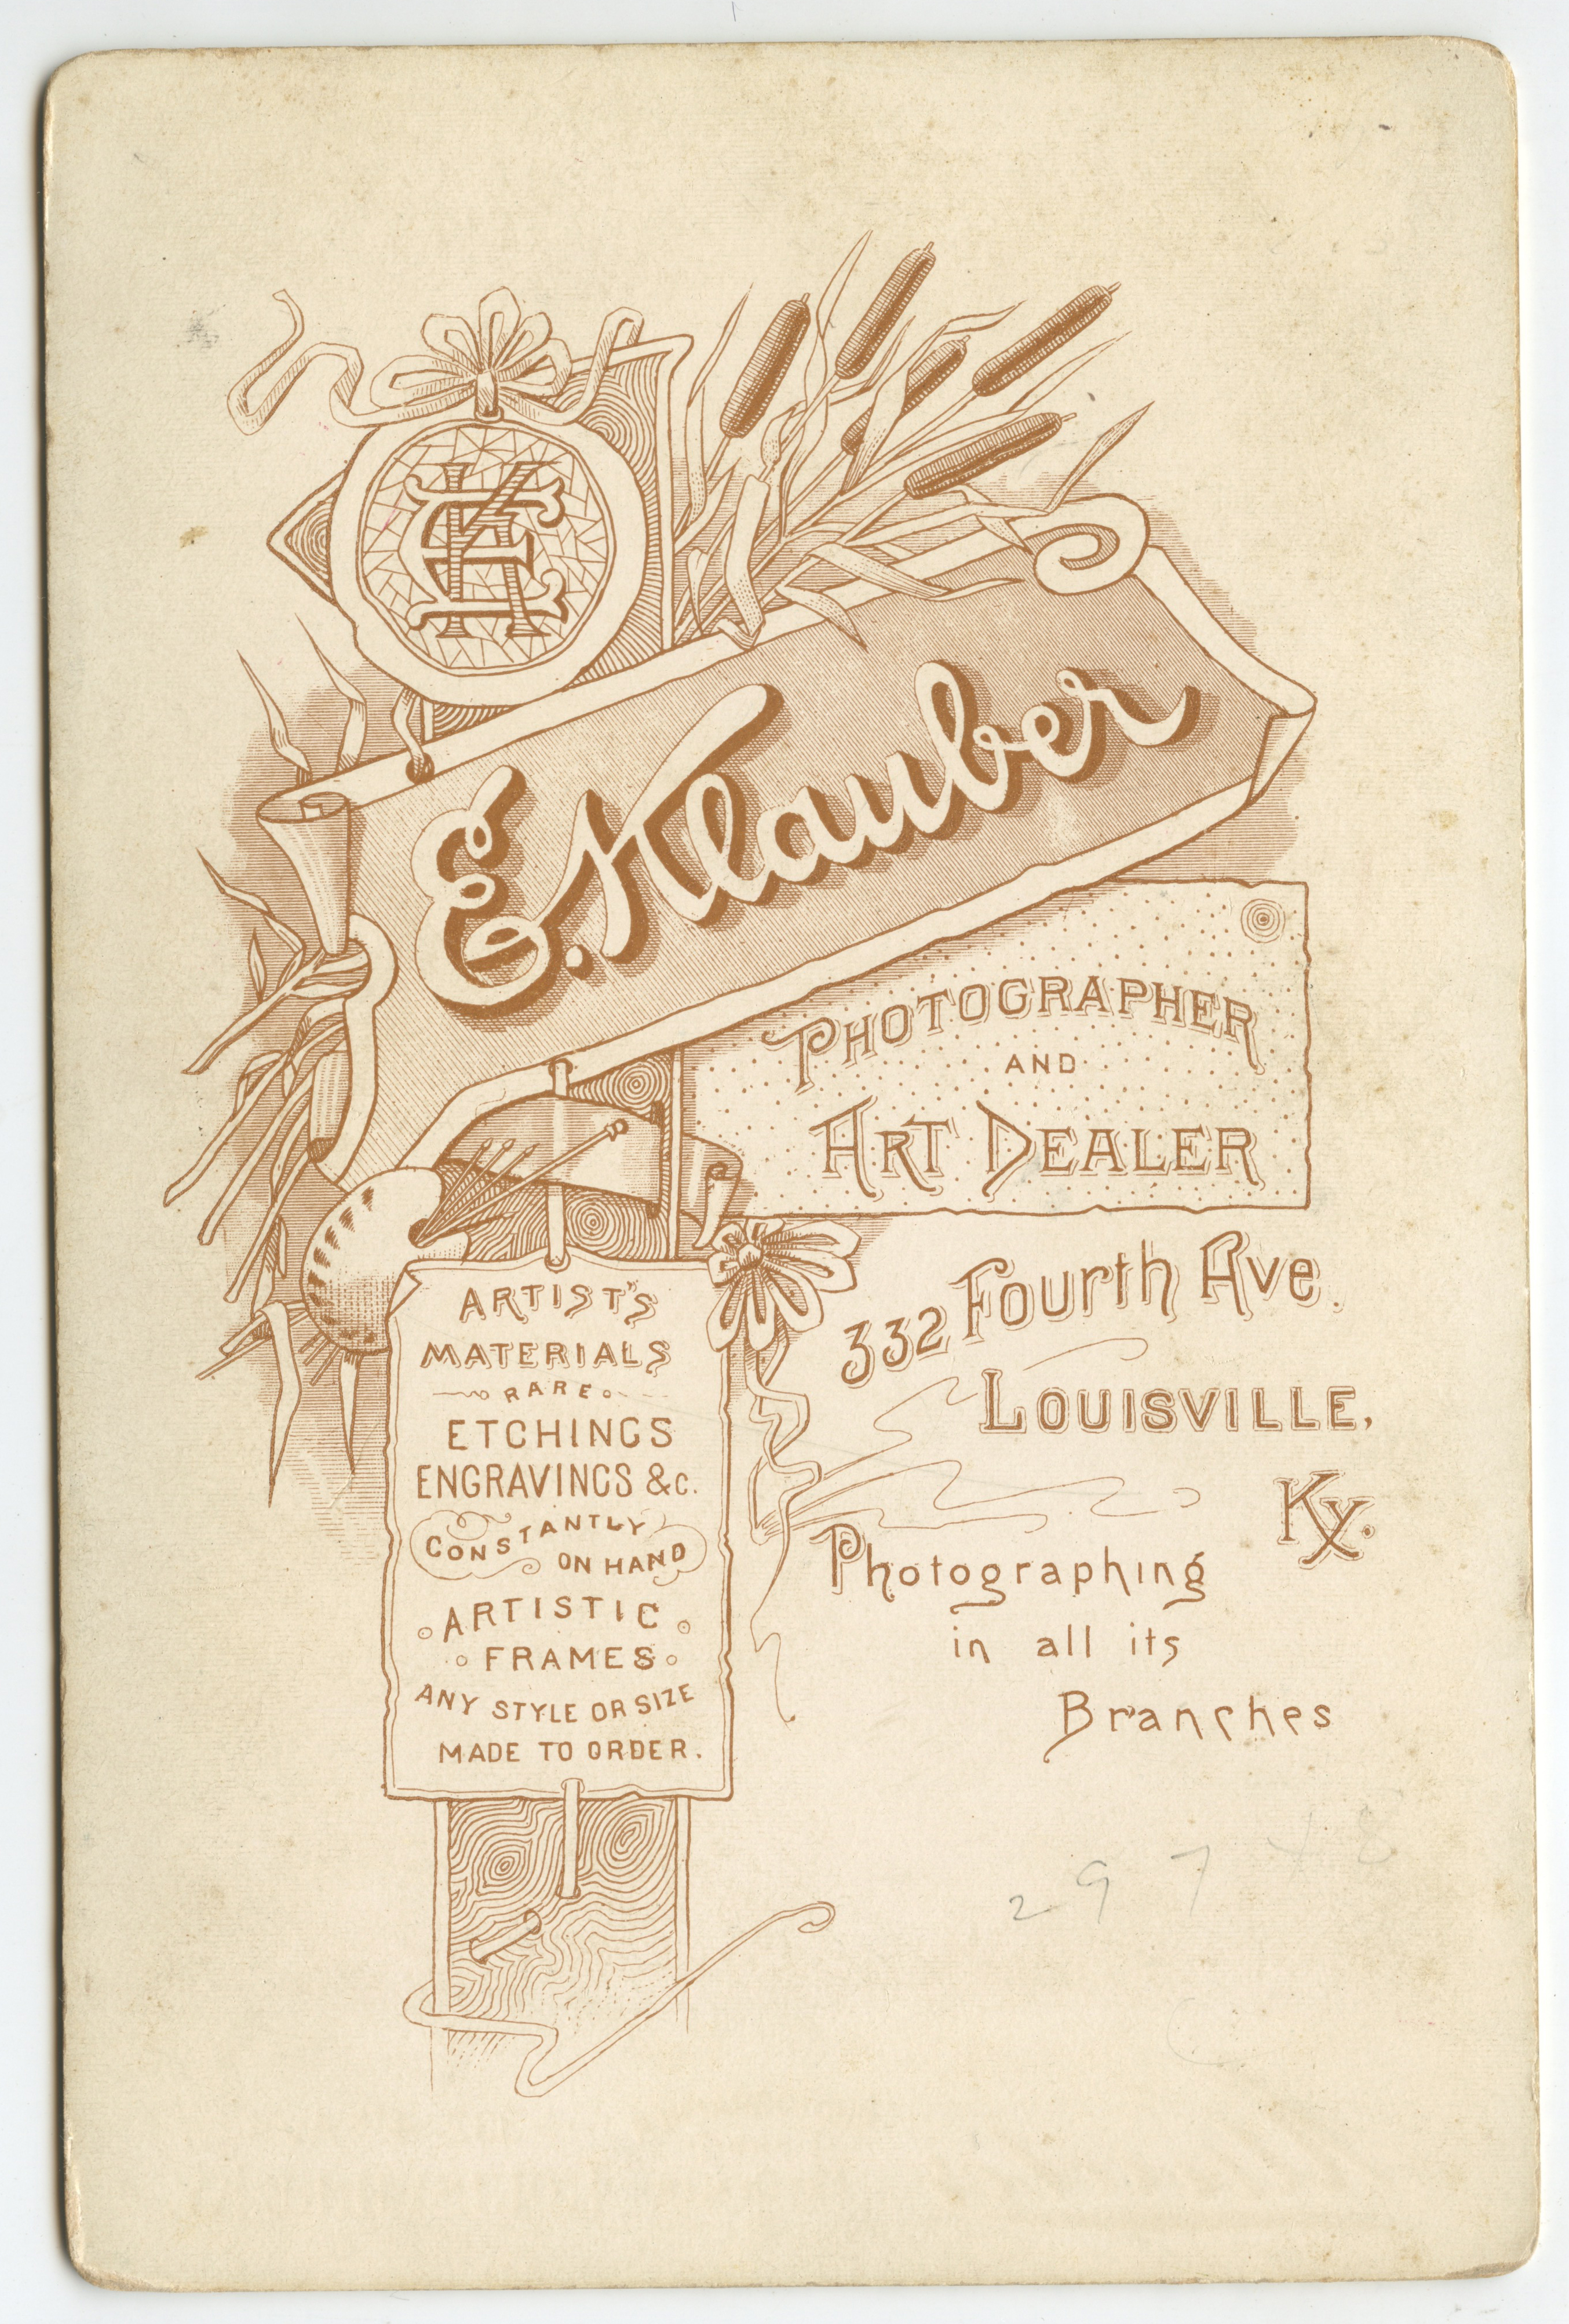 EK
E. Klauber
PHOTOGRAPHER
AND
ART DEALER
332 Fourth Ave.
LOUISVILLE,
Ky.
Photographing
in all its
Branches
ARTIST'S
MATERIALS
RARE
ETCHINGS
ENGRAVINGS &c.
CONSTANTLY
ON HAND
ARTISTIC
FRAMES
ANY STYLE OR SIZE
MADE TO ORDER.
297